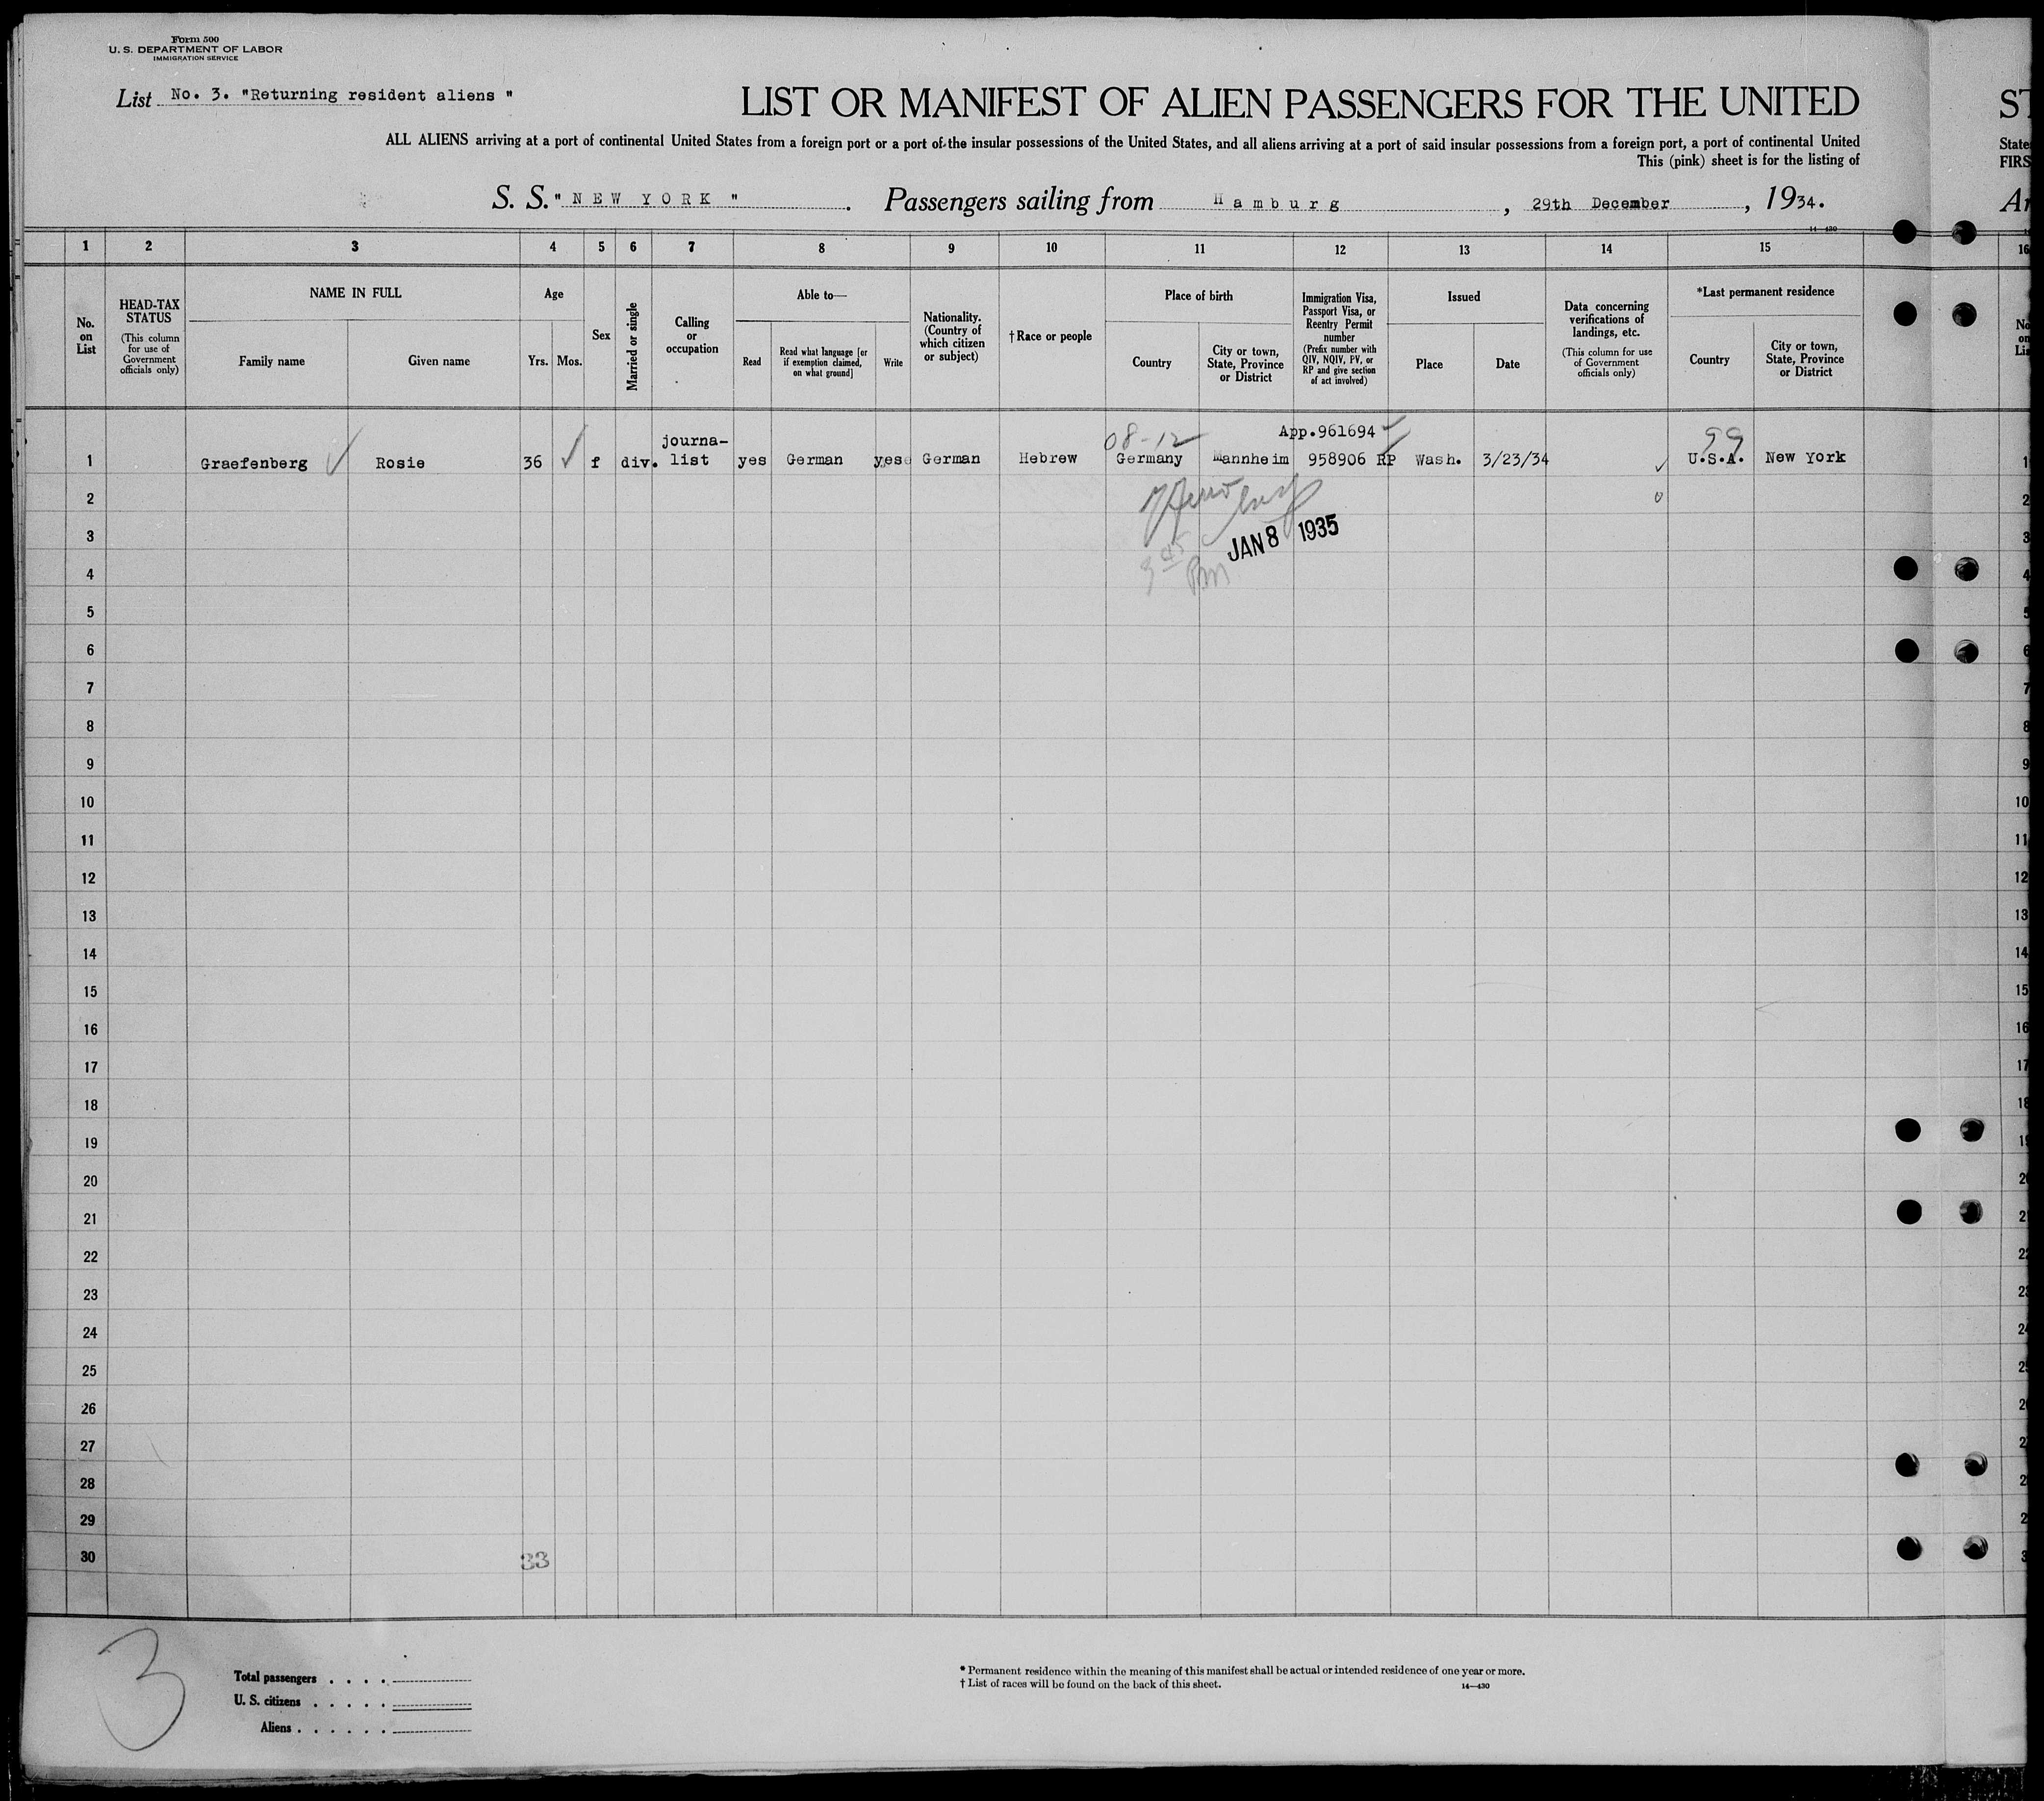 Form 500
U. S. DEPARTMENT OF LABOR
IMMIGRATION SERVICE
List No. 3. "Returning resident aliens "
LIST OR MANIFEST OF ALIEN PASSENGERS FOR THE UNITED
ST
ALL ALIENS arriving at a port of continental United States from a foreign port or a port of the insular possessions of the United States, and all aliens arriving at a port of said insular possessions from a foreign port, a port of continental United
State
This (pink) sheet is for the listing of
FIRS
S. S. " N E W Y O R K " . Passengers sailing from H a m b u r g , 29th December , 1934.
14—430
1 2 3 4 5 6 7 8 9 10 11 12 13 14 15 16
No. on List
HEAD-TAX STATUS
(This column for use of Government officials only)
NAME IN FULL
Family name
Given name
Age
Yrs. Mos.
Sex
Married or single
Calling or occupation
Able to—
Read
Read what language [or if exemption claimed, on what ground]
Write
Nationality. (Country of which citizen or subject)
† Race or people
Place of birth
Country
City or town, State, Province or District
Immigration Visa, Passport Visa, or Reentry Permit number
(Prefix number with QIV, NQIV, PV, or RP and give section of act involved)
Issued
Place
Date
Data concerning verifications of landings, etc.
(This column for use of Government officials only)
*Last permanent residence
Country
City or town, State, Province or District
08-12 App.961694 99
1 Graefenberg Rosie 36 f div. journa-list yes German yes German Hebrew Germany Mannheim 958906 RP Wash. 3/23/34 U.S.A. New York 1
2
3
JAN 8 1935
3 45 PM
4
5
6
7
8
9
10
11
12
13
14
15
16
17
18
19
20
21
22
23
24
25
26
27
28
29
30
33
3
Total passengers . . . .
U. S. citizens . . . . .
Aliens . . . . . .
* Permanent residence within the meaning of this manifest shall be actual or intended residence of one year or more.
† List of races will be found on the back of this sheet.
14—430